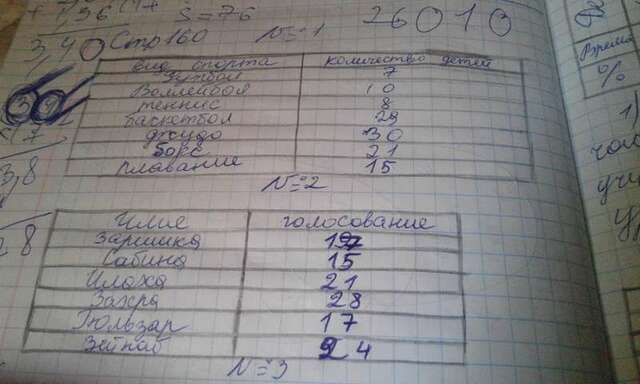 156
S=76
26010
3,4
Стр 160 №1
вид спорта количество детей
футбол 7
Воллейбол 10
теннис 8
баскетбол 29
дзюдо 30
бокс 21
плавание 15
Время
%
3,8
№2
Имие голосование
Заришка 197
Сабина 15
Илаха 21
Захра 28
Гюльзар 17
Зейнаб 24
28
№3
1)